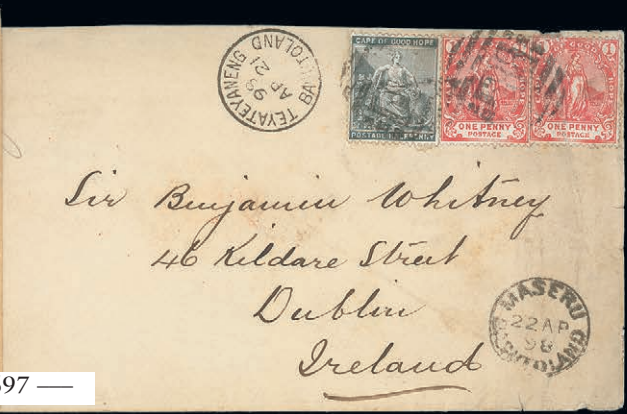 TEYATEYANENG BASUTOLAND
AP 21
98
CAPE OF GOOD HOPE
POSTAGE HALF-PENNY
ONE PENNY
POSTAGE
1
ONE PENNY
POSTAGE
Sir Benjamin Whitney
46 Kildare Street
Dublin
Ireland
MASERU
22 AP
98
BASUTOLAND
697 —